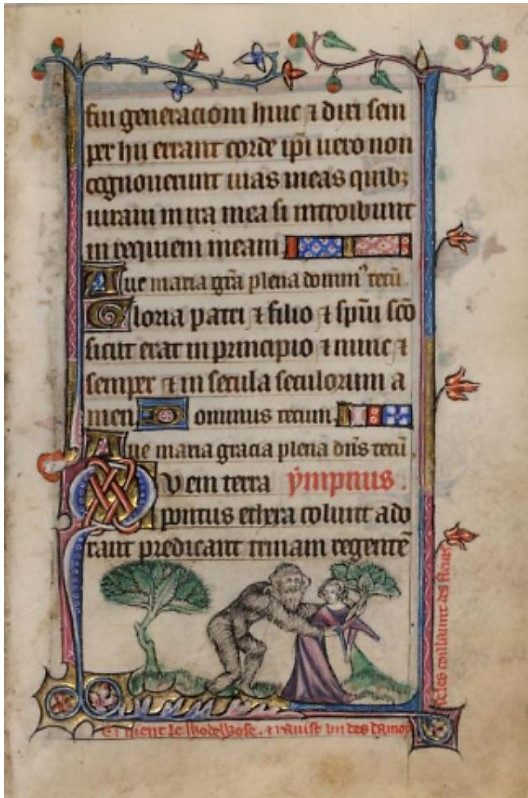 fui generacioni huic ⁊ dixi sem
per hii errant corde ipi uero non
cognouerunt uias meas quibꝫ
iuraui in ira mea si introibunt
in requiem meam
Aue maria gra plena dominꝰ tecu
Gloria patri ⁊ filio ⁊ spui sco
sicut erat in principio ⁊ nunc ⁊
semper ⁊ in secula seculorum a
men Dominus tecum
Aue maria gracia plena dns tecu.
Quem terra ympnus.
pontus ethera colunt ado
rant predicant trinam regente
⁊ les coillaunt des fleurs
Et vient le Wodewose. ⁊ rauist un des